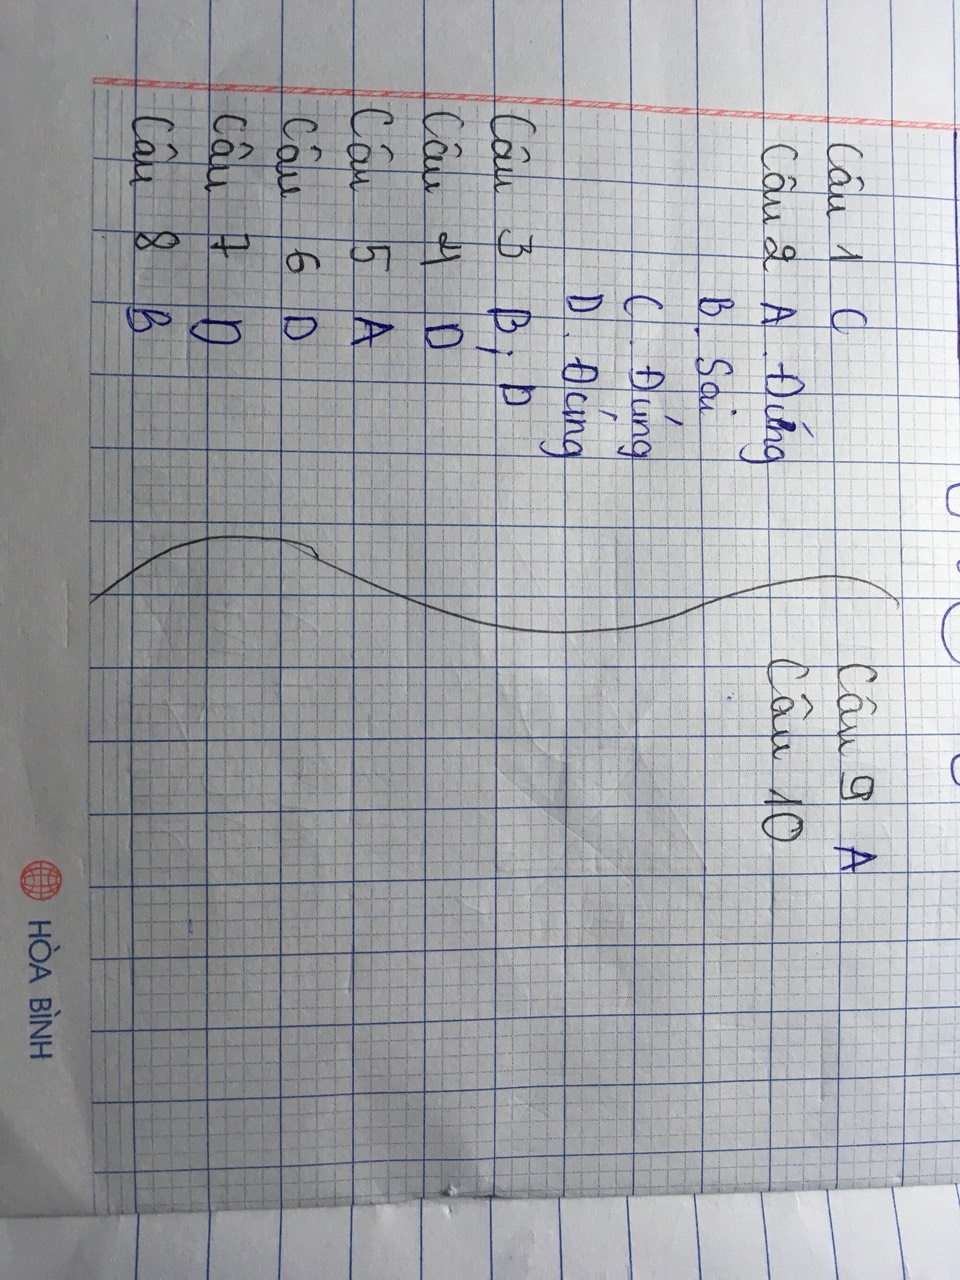 Câu 1 C
Câu 2 A. Đúng
B. Sai
C. Đúng
D. Đúng
Câu 3 B; D
Câu 4 D
Câu 5 A
Câu 6 D
Câu 7 D
Câu 8 B
Câu 9 A
Câu 10
HÒA BÌNH